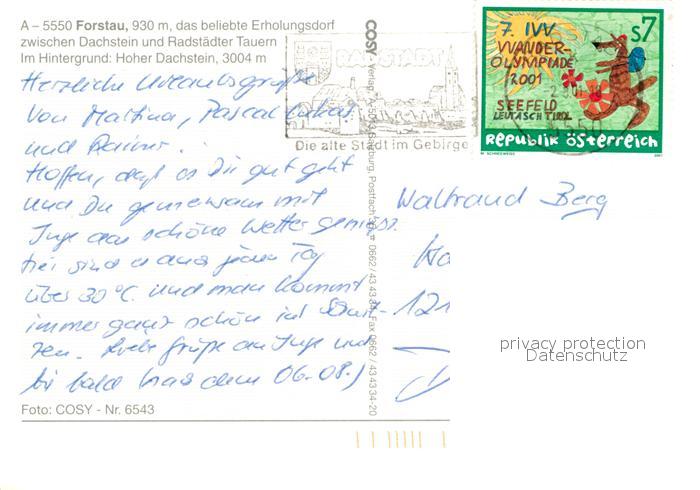 A – 5550 Forstau, 930 m, das beliebte Erholungsdorf
zwischen Dachstein und Radstädter Tauern
Im Hintergrund: Hoher Dachstein, 3004 m
Herzliche Urlaubsgrüße
von Martina, Pascal, Lukas
und Rainer.
Hoffen, daß es Dir gut geht
und Du gemeinsam mit
Inge das schöne Wetter genießt.
Hier sind es auch jeden Tag
über 30°C. und man kommt
immer ganz schön ins Schwit-
zen. Liebe Grüße an Inge und
bis bald (nach dem 06.08.)
Foto: COSY - Nr. 6543
COSY - Verlag, Salzburg, Postfach 0662/43 43 34, Fax 0662/43 43 34-20
RADSTADT
Die alte Stadt im Gebirge
7. IVV
WANDER-
OLYMPIADE
2001
SEEFELD
LEUTASCH TIROL
S7
REPUBLIK ÖSTERREICH
2001
Waltraud Berg
121
privacy protection
Datenschutz